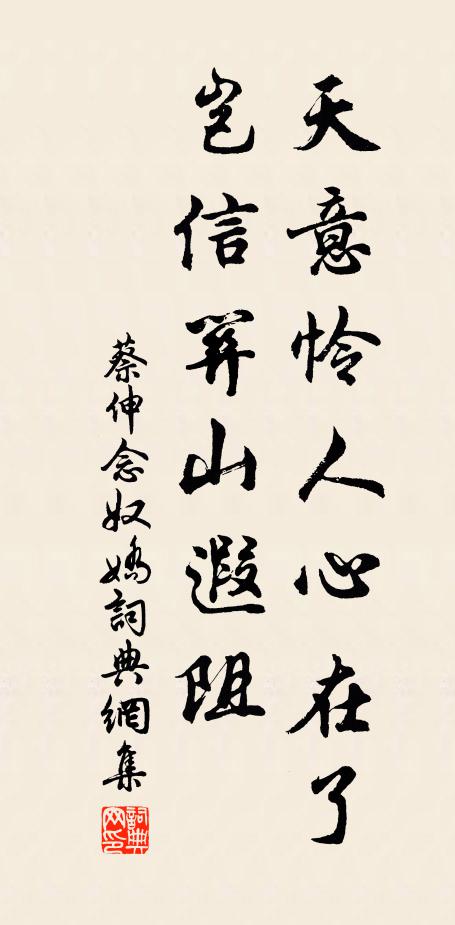 天意怜人心在了
岂信關山遐阻
蔡伸念奴嬌詞典網集
詞典网印